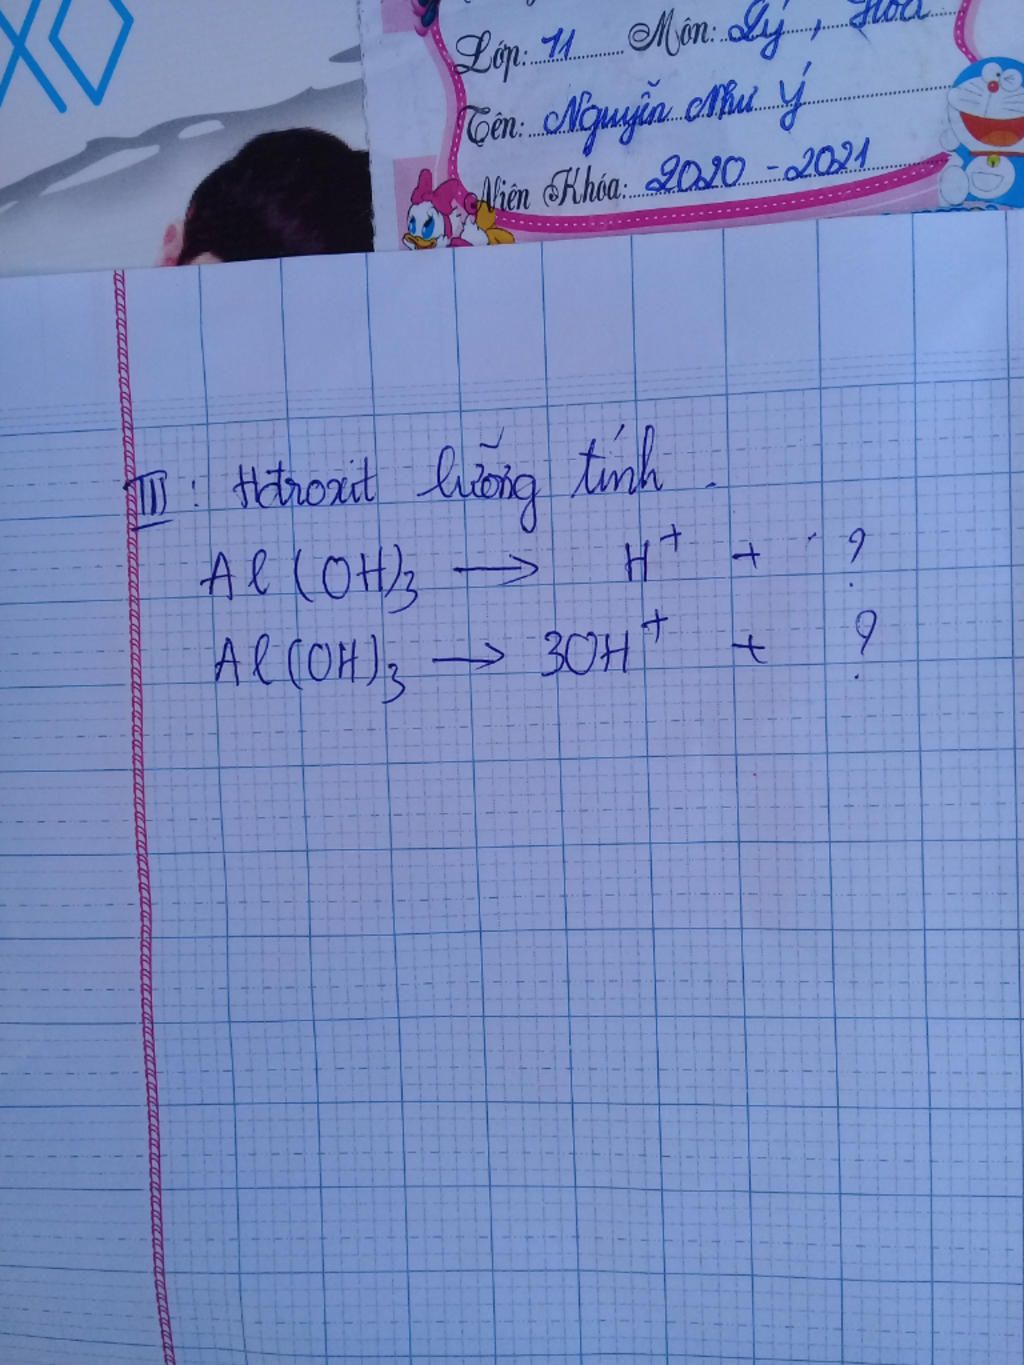 XO
Lớp: 11 Môn: Lý, Hóa
Tên: Nguyễn Như Ý
Niên Khóa: 2020 - 2021
III: Hđroxit lưỡng tính.
Al(OH)₃ → H⁺ + ?
Al(OH)₃ → 3OH⁺ + ?